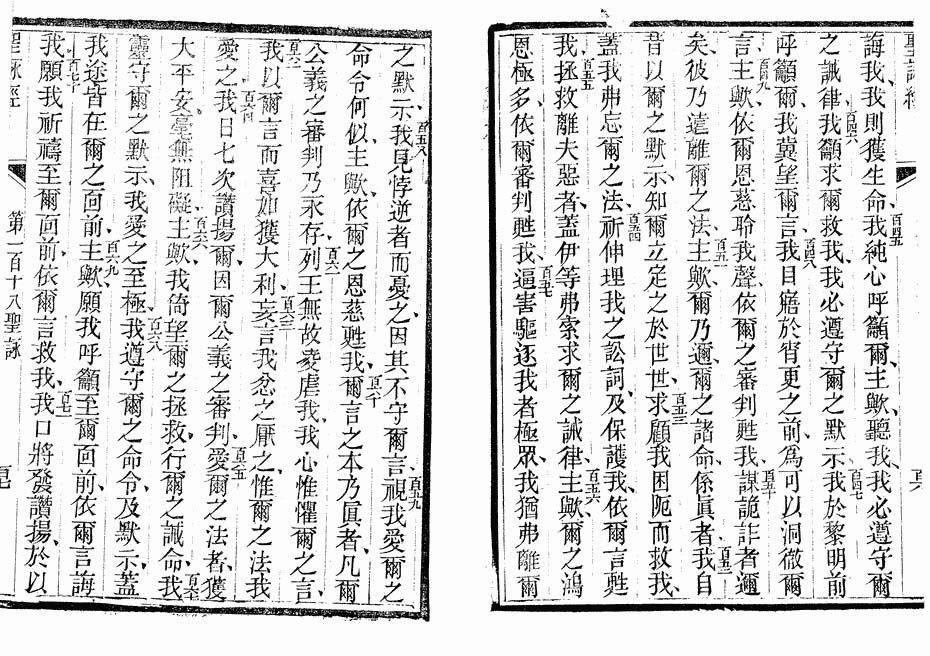 聖詠經
誨我、我則獲生命、百四五我純心呼籲爾、主歟、聽我、我必遵守爾
之誡律、百四六我籲求爾、救我、我必遵守爾之默示、百四七我於黎明前
呼籲爾、我冀望爾言、百四八我目寤於宵更之前、為可以洞徹爾
言、百四九主歟、依爾恩慈聆我聲、依爾之審判甦我、百五十謀詭詐者邇
矣、彼乃遠離爾之法、百五一主歟、爾乃邇、爾之諸命、係眞者、百五二我自
昔以爾之默示、知爾立定之於世世、百五三求顧我困阨而救我、
蓋我弗忘爾之法、百五四祈伸理我之訟詞、及保護我、依爾言甦
我、百五五拯救離夫惡者、蓋伊等弗索求爾之誡律、百五六主歟、爾之鴻
恩極多、依爾審判甦我、百五七逼害驅逐我者極眾、我猶弗離爾
之默示、百五八我見悖逆者而憂之、因其不守爾言、百五九視我愛爾之
命令何似、主歟、依爾之恩慈甦我、百六十爾言之本乃眞者、凡爾
公義之審判乃永存、百六一列王無故凌虐我、我心惟懼爾之言、
百六二我以爾言而喜、如獲大利、百六三妄言我忿之厭之、惟爾之法我
愛之、百六四我日七次讚揚爾、因爾公義之審判、百六五愛爾之法者、獲
大平安、毫無阻礙、百六六主歟、我倚望爾之拯救、行爾之誡命、百六七我
靈守爾之默示、我愛之至極、百六八我遵守爾之命令及默示、蓋
我途皆在爾之面前、百六九主歟、願我呼籲至爾面前、依爾言誨
我、百七十願我祈禱至爾面前、依爾言救我、百七一我口將發讚揚、於以
聖詠經 第一百十八聖詠